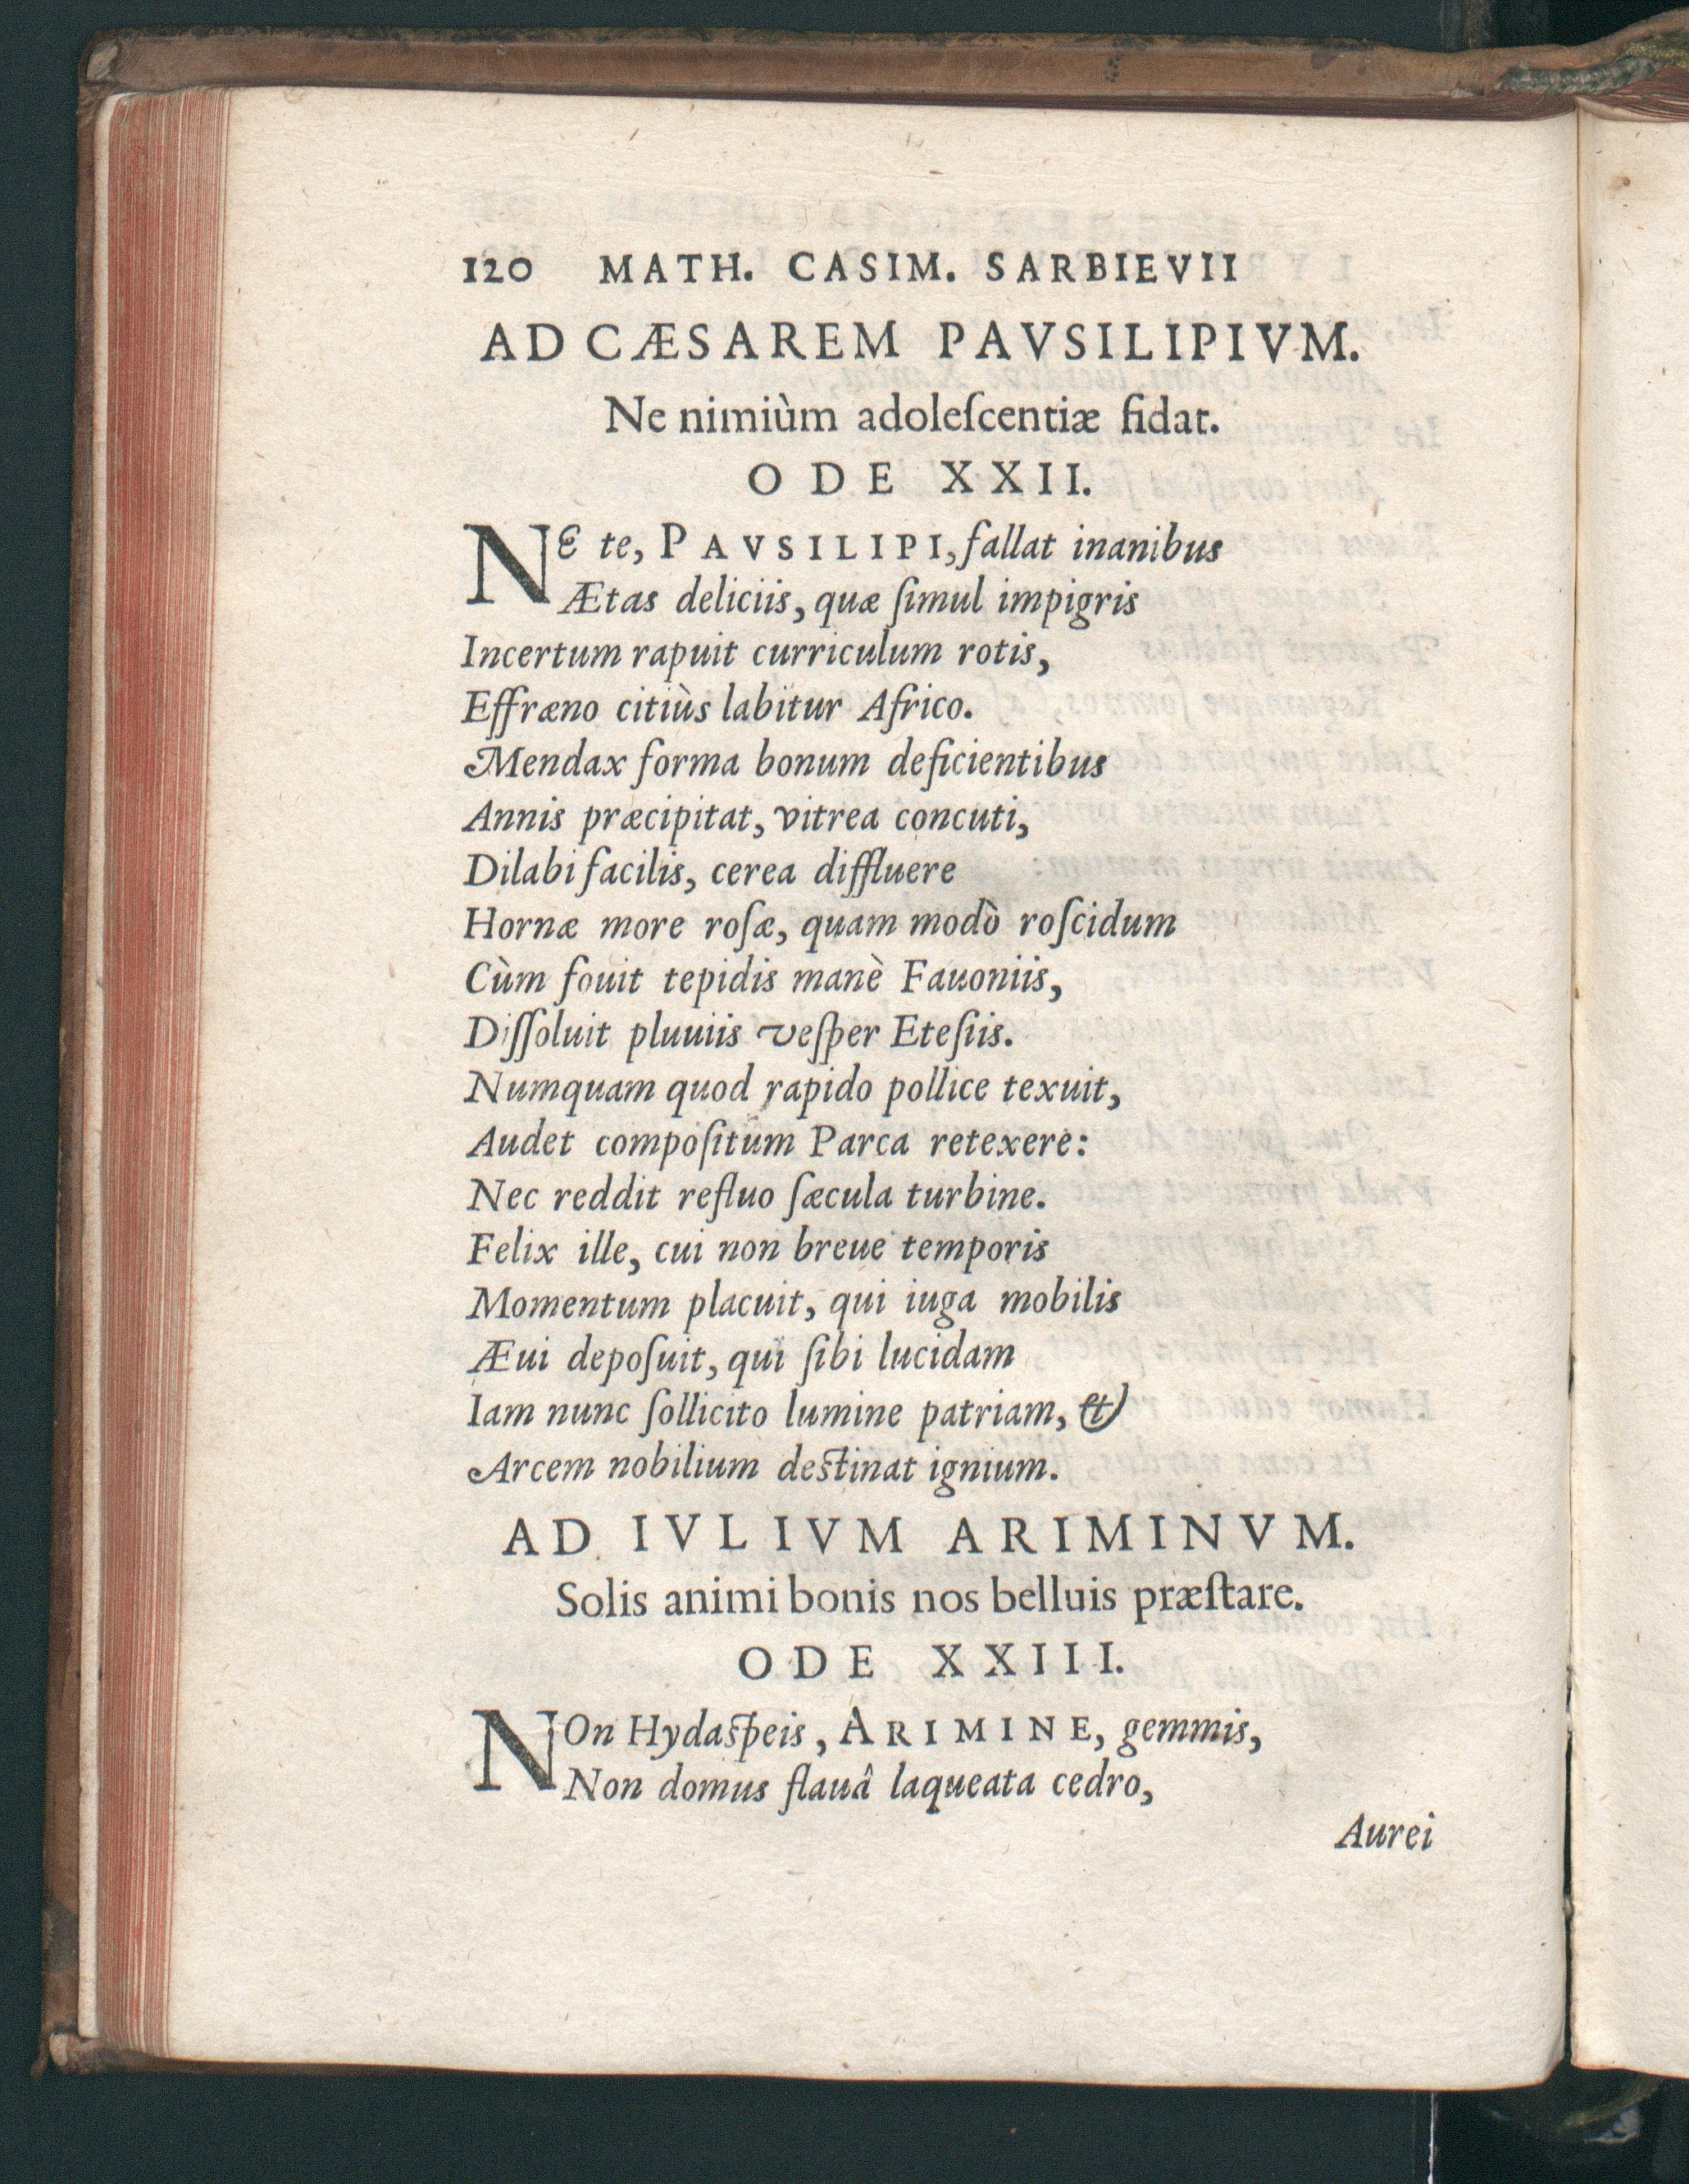 120 MATH. CASIM. SARBIEVII
AD CÆSAREM PAVSILIPIVM.
Ne nimiùm adoleſcentiæ fidat.
ODE XXII.
NE te, PAVSILIPI, fallat inanibus
Ætas deliciis, quæ ſimul impigris
Incertum rapuit curriculum rotis,
Effræno citiùs labitur Africo.
Mendax forma bonum deficientibus
Annis præcipitat, vitrea concuti,
Dilabi facilis, cerea diffluere
Hornæ more roſæ, quam modò roſcidum
Cùm fouit tepidis manè Fauoniis,
Diſſoluit pluuiis veſper Eteſiis.
Numquam quod rapido pollice texuit,
Audet compoſitum Parca retexere:
Nec reddit refluo ſæcula turbine.
Felix ille, cui non breue temporis
Momentum placuit, qui iuga mobilis
Æui depoſuit, qui ſibi lucidam
Iam nunc ſollicito lumine patriam, et
Arcem nobilium deſtinat ignium.
AD IVLIVM ARIMINVM.
Solis animi bonis nos belluis præſtare.
ODE XXIII.
NOn Hydaſpeis, ARIMINE, gemmis,
Non domus flauâ laqueata cedro,
Aurei